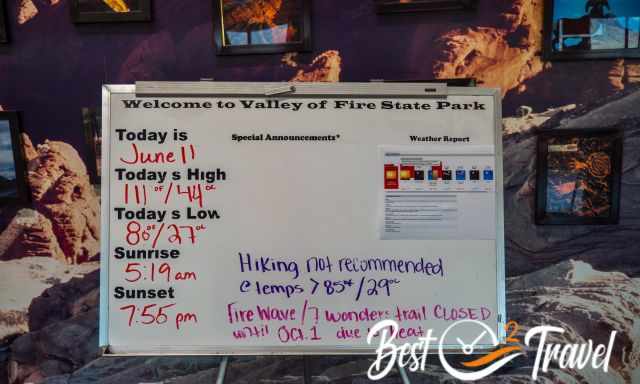 Welcome to Valley of Fire State Park
Today is
June 11
Today s High
111 °F/44 °C
Today s Low
80°/27 °C
Sunrise
5:19 am
Sunset
7:55 pm
Special Announcements*
Hiking not recommended
@ temps > 85°F/29°C
Fire Wave/7 wonders trail CLOSED
until Oct. 1 due heat
Weather Report
Best O2 Travel